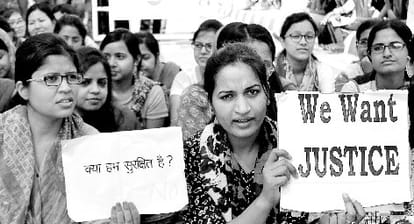 क्या हम सुरक्षित है ?
We Want
JUSTICE